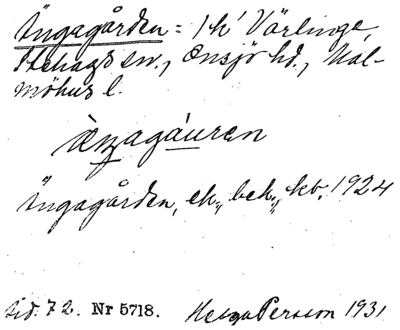 Ängagården = 1 h' Värlinge,
Stehags sn., Onsjö hd., Mal-
möhus l.
ængagáuren
Ängagården, ek., beb., kb. 1924
Sid. 72. Nr 5718. Helga Persson 1931